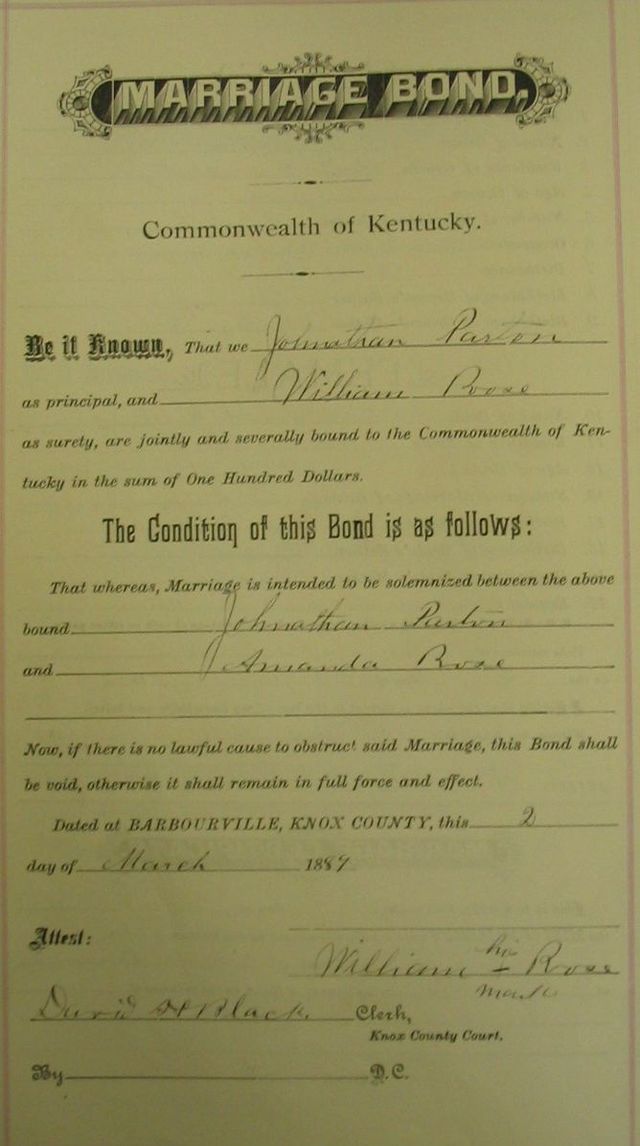 MARRIAGE BOND,
Commonwealth of Kentucky.
Be it Known, That we Johnathan Parton
as principal, and William Roose
as surety, are jointly and severally bound to the Commonwealth of Ken-
tucky in the sum of One Hundred Dollars.
The Condition of this Bond is as follows:
That whereas, Marriage is intended to be solemnized between the above
bound Johnathan Parton
and Amanda Rose
Now, if there is no lawful cause to obstruct said Marriage, this Bond shall
be void, otherwise it shall remain in full force and effect.
Dated at BARBOURVILLE, KNOX COUNTY, this 2
day of March 1889
Attest:
William his Rose
mark
David H Black Clerk,
Knox County Court.
By D.C.